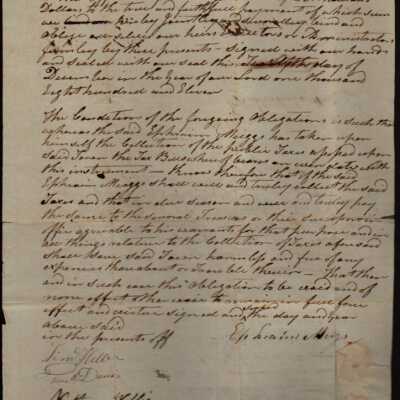 Dollars, to the true and faithfull payment of which sum
we Binding jointly and severalley bind and
oblige ourselves our heirs Executors or Administrators
firmley by these presents - signed with our hands
and sealed with our seal this day of
December in the year of our Lord one thousand
Eight hundred and Eleven
The Condetion of the foregoing Obligation is such that
whereas the said Ephraim Meiggs has taken upon
himself the Collection of the publick Taxes apessed upon
said Town the Tax Bills
this instrument - know therefor that if the said
Ephraim Meiggs shall well and truley collect the said
Taxes and that in due season and well and truley pay
the same to the several Treasurers or their successors in
offis agreeable to his warrants for that purpose and in
all things relative to the Collection of Taxes aforesaid
shall save said Town harmless and free of any
expences than about or trouble therein - That then
and in such case this obligation to be void and of
none effect other wise to remain in full force
effect and virtue signed and the day and year
above said
in the presents off Ephraim Meigs